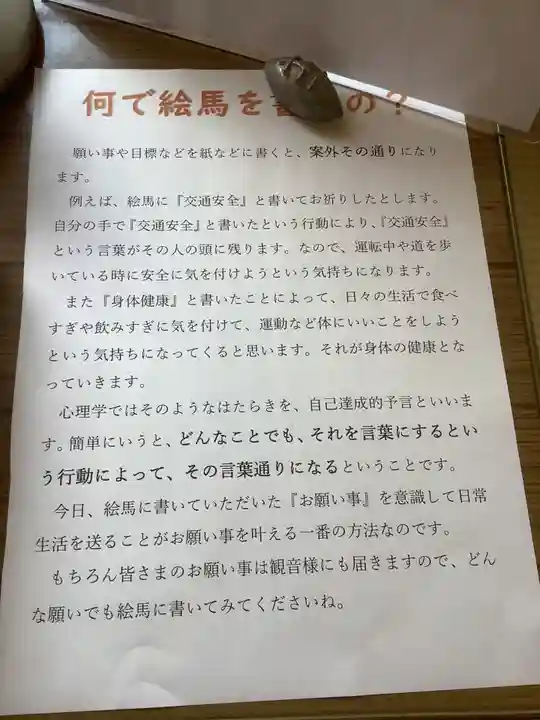 何で絵馬を書 の？
願い事や目標などを紙などに書くと、案外その通りになり
ます。
例えば、絵馬に『交通安全』と書いてお祈りしたとします。
自分の手で『交通安全』と書いたという行動により、『交通安全』
という言葉がその人の頭に残ります。なので、運転中や道を歩
いている時に安全に気を付けようという気持ちになります。
また『身体健康』と書いたことによって、日々の生活で食べ
すぎや飲みすぎに気を付けて、運動など体にいいことをしよう
という気持ちになってくると思います。それが身体の健康とな
っていきます。
心理学ではそのようなはたらきを、自己達成的予言といいま
す。簡単にいうと、どんなことでも、それを言葉にするとい
う行動によって、その言葉通りになるということです。
今日、絵馬に書いていただいた『お願い事』を意識して日常
生活を送ることがお願い事を叶える一番の方法なのです。
もちろん皆さまのお願い事は観音様にも届きますので、どん
な願いでも絵馬に書いてみてくださいね。